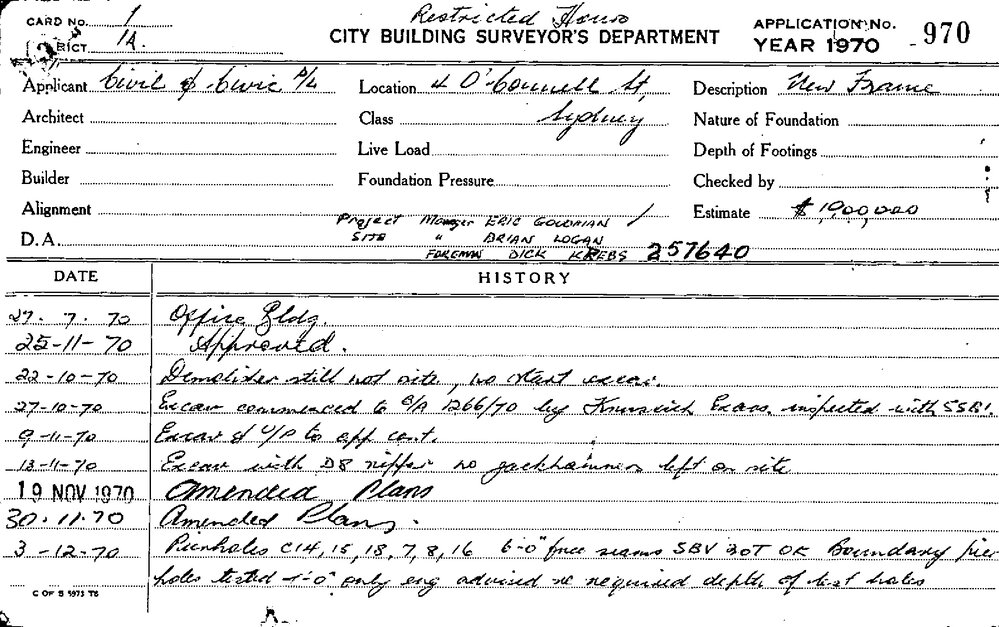 CARD No. 1
Restricted Hours
CITY BUILDING SURVEYOR'S DEPARTMENT
APPLICATION No.
YEAR 1970 - 970
RICT 1A.
Applicant Civil & Civic P/L
Location 4 O'Connell St,
Description New Frame
Architect
Class Sydney
Nature of Foundation
Engineer
Live Load
Depth of Footings
Builder
Foundation Pressure
Checked by
Alignment
Estimate $1,000,000
Project Manager ERIC GOLDMAN
D.A.
SITE " BRIAN LOGAN
FOREMAN DICK KREBS 257640
DATE HISTORY
27. 7. 70 Office Bldg.
25-11-70 Approved.
22-10-70 Demolisher still not site, no start excav.
27-10-70 Excav commenced to B/A 1266/70 by Excavs. inspected with SSBI.
9-11-70 Excav & U/P to app cont.
13-11-70 Excav with D8 ripper no jackhammers left on site
19 NOV 1970 Amended Plans
30.11.70 Amended Plans.
3-12-70 Pierholes C14, 15, 18, 7, 8, 16 6'-0" free seams SBV 20T OK Boundary pier
holes tested 4'-0" only eng advised re required depth of test holes
C OF S 5973 TS